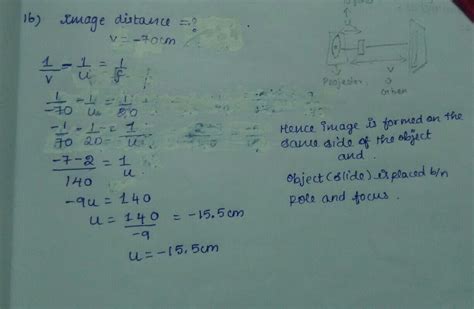 16) Image distance = ?
v = -70cm
1/v - 1/u = 1/f
1/-70 - 1/u = 1/20
-1/70 - 1/20 = 1/u
-7-2/140 = 1/u
-9u = 140
u = 140/-9 = -15.5cm
u = -15.5cm
v
Projector
Hence image is formed on the
same side of the object
and
object(slide) is placed b/n
pole and focus.